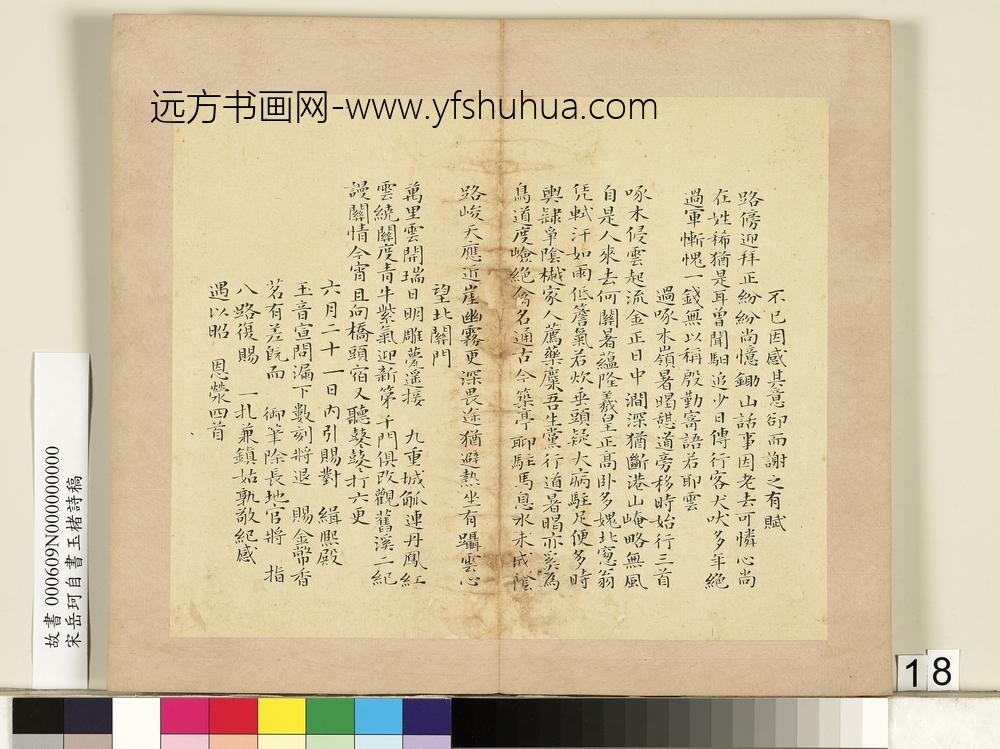 远方书画网-www.yfshuhua.com
不已因感其意卻而謝之有賦
路傍迎拜正紛紛尚憶鋤山話事因老去可憐心尚
在姓稀猶是耳曾聞駟追少日傳行客犬吠多年絕
過軍慚愧一錢無以稱殷勤寄語若耶雲
過啄木嶺暑暍憇道旁移時始行三首
啄木侵雲起流金正日中澗深猶斷港山崦略無風
自是人來去何關暑蘊隆羲皇正高卧多媿北窻翁
凭軾汗如雨低簷氣若炊垂頭疑大病駐足便多時
輿隷爭陰樾家人薦藥糜吾生黨行道暑暍亦奚為
鳥道度嶮絕舊名通古今築亭聊駐馬息水未成陰
路峻天應近崖幽霧更深畏途猶避熱坐有躡雲心
望北關門
萬里雲開瑞日明雕甍遥接 九重城觚連丹鳳紅
雲繞關度青牛紫氣迎新第千門俱改觀舊溪二紀
謾關情今宵且向橋頭宿又聽鼕鼕打六更
六月二十一日內引賜對 緝熙殿
玉音宣問漏下數刻將退 賜金幣香
茗有差既而 御筆除長地官將 指
八路復賜 一札兼鎮姑孰敬紀感
遇以昭 恩榮四首
故書000609N000000000
宋岳珂自書玉楮詩稿
18